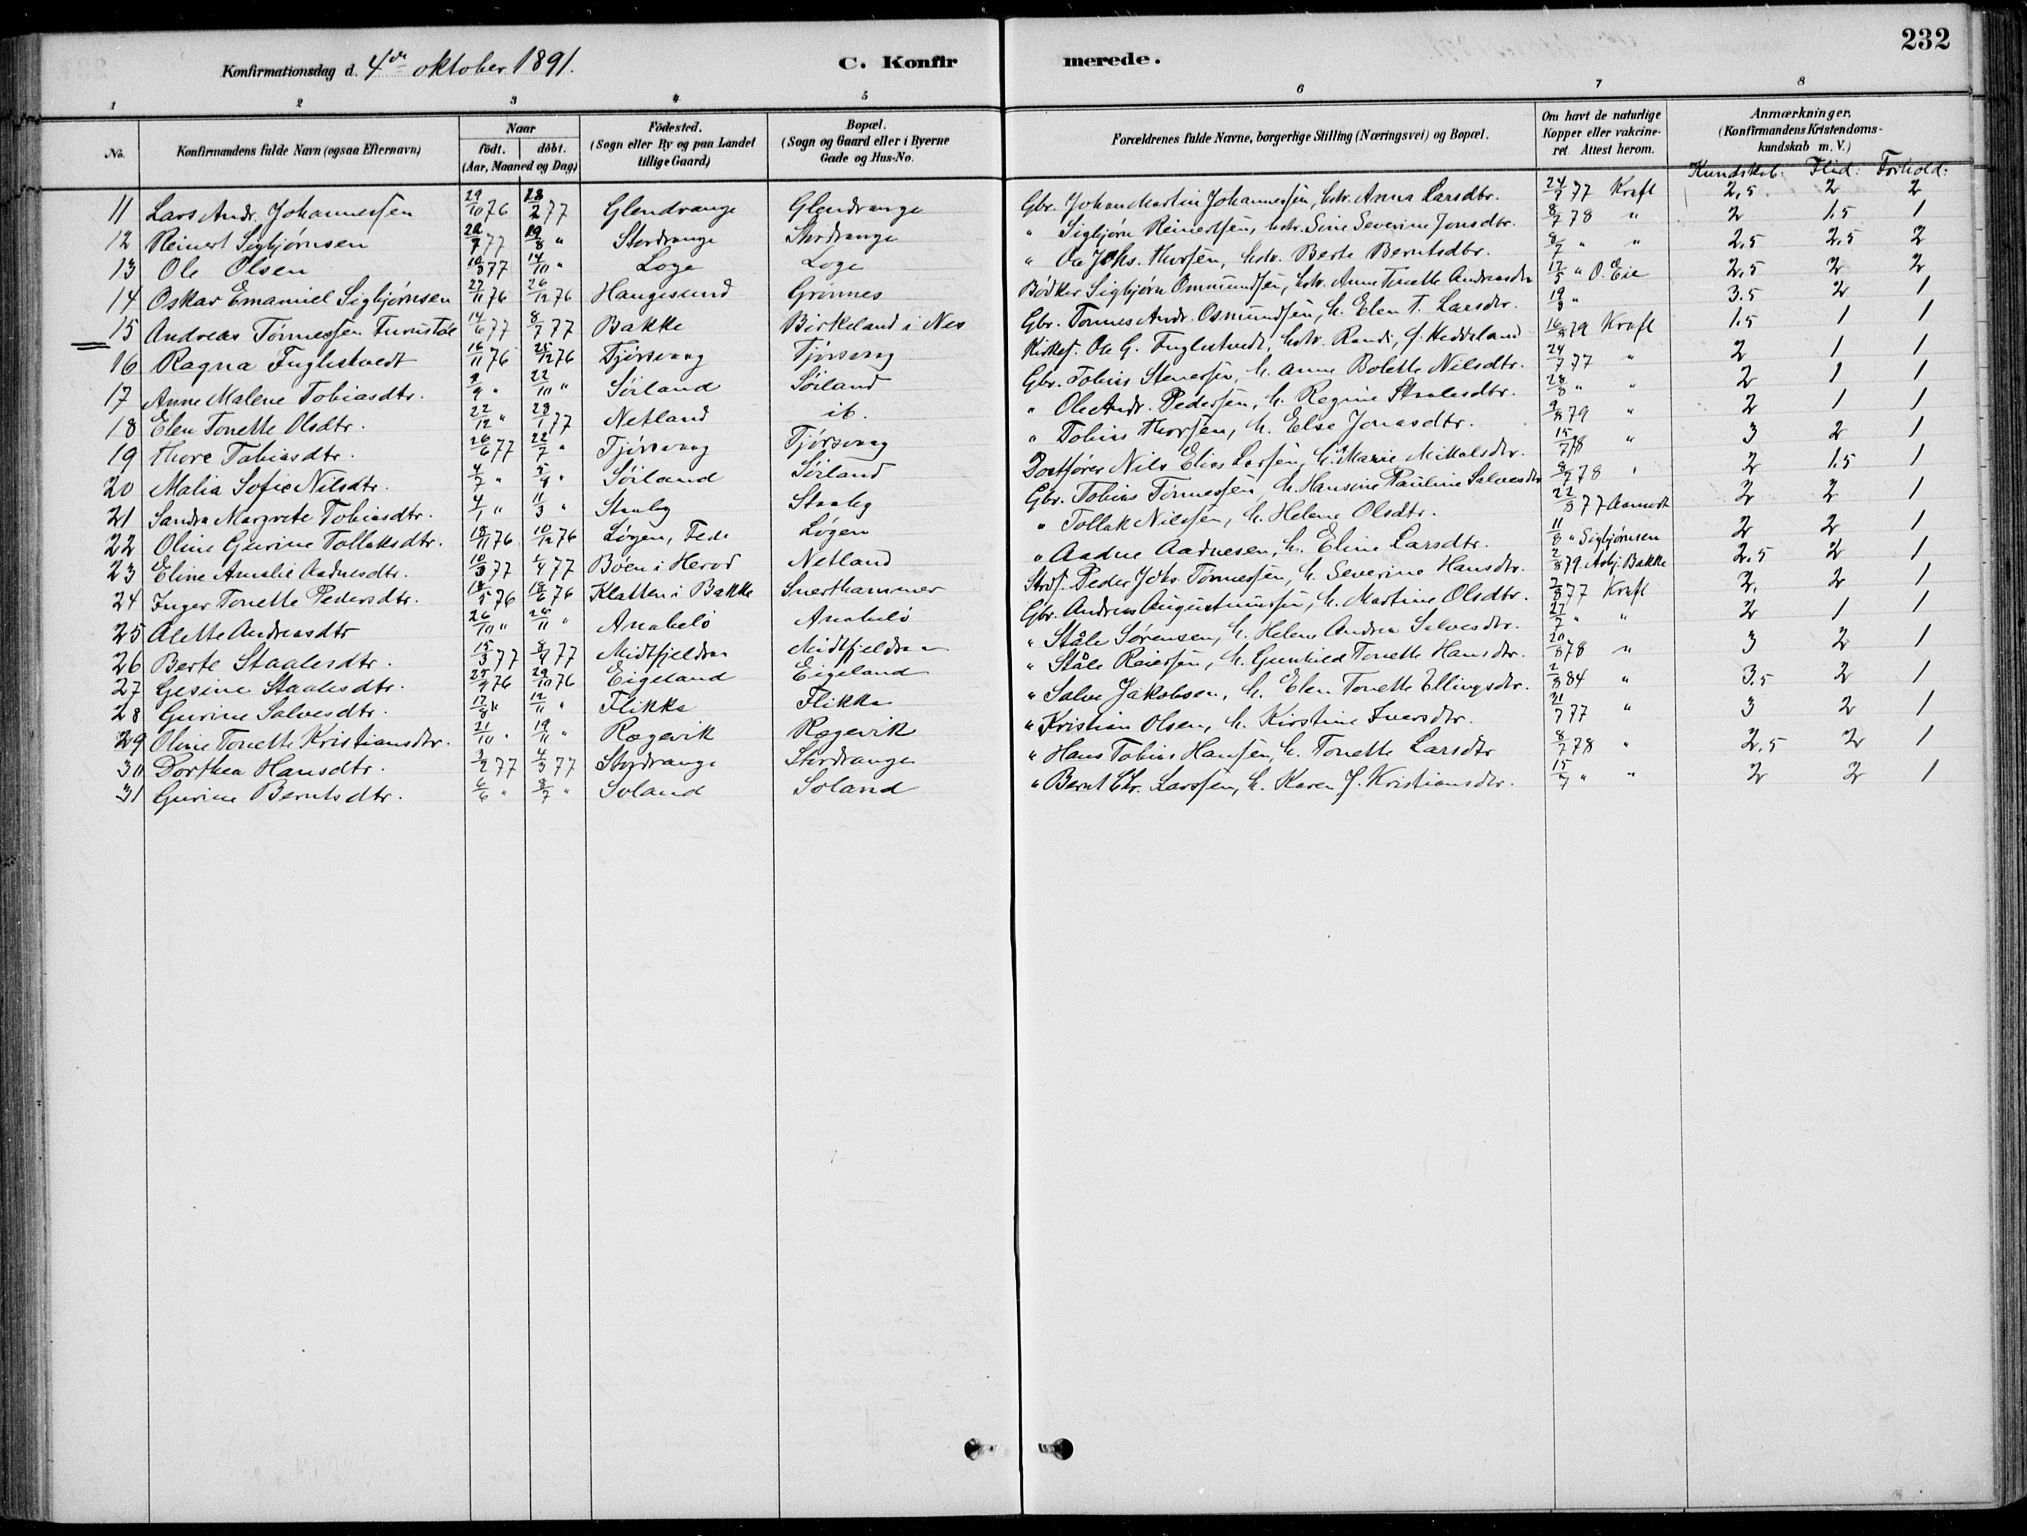 232
Konfirmationsdag d. 4de oktober 1891. C. Konfir merede.
1 2 3 4 5 6 7 8
No. Konfirmandens fulde Navn (ogsaa Efternavn) Naar født. døbt. (Aar, Maaned og Dag) Fødested. (Sogn eller By og paa Landet tillige Gaard) Bopæl. (Sogn og Gaard eller i Byerne Gade og Hus-No. Forældrenes fulde Navne, borgerlige Stilling (Næringsvei) og Bopæl. Om havt de naturlige Kopper eller vakcineret. Attest herom. Anmærkninger. (Konfirmandens Kristendomskundskab m. V.)
Kundskab: Flid: Forhold:
11 Lars Andr. Johannessen 29/10 76 28/2 77 Glendrange Glendrange Gbr. Johan Martin Johannessen, hstr. Anna Larsdtr. 24/7 77 Kraft 2,5 2 2
12 Reinert Sigbjørnsen 22/7 77 19/8 " Stordrange Stordrange " Sigbjørn Reinertsen, hstr. Sine Severine Jonsdtr. 8/7 78 " 2 1.5 1
13 Ole Olsen 10/9 77 14/10 " Loge Loge " Ole Johs. Thorsen, hstr. Berte Berntsdtr. 8/7 " " 2,5 2,5 2
14 Oskar Emanuel Sigbjørnsen 27/11 76 26/12 76 Haugesund Grønnes Bødker Sigbjørn Ommundsen, hstr. Anne Tonette Andreasdtr 17/5 " O. Eie 2,5 2 2
15 Andreas Tønnessen Furustøl 14/6 77 8/7 77 Bakke Birkeland i Nes Gbr. Tønnes Andr. Osmundsen, h. Elen T. Larsdtr. 19/9 " 3.5 2 1
16 Ragna Fuglestvedt 16/11 76 25/12 76 Tjørsvaag Tjørsvaag Kirkes. Ole G. Fuglestvedt, hstr. Randi, f. Heddeland 16/8 79 Kraft 1.5 1 1
17 Anne Malene Tobiasdtr. 9/9 " 22/10 " Søiland Søiland Gbr. Tobias Stenersen, h. Anne Bolette Nilsdtr. 24/7 77 " 2 1 1
18 Elen Tonette Olsdtr. 22/12 " 28/1 77 Netland ib. " Ole Andr. Pedersen, h. Regine Staalesdtr. 28/8 " " 2 1 1
19 Thore Tobiasdtr. 26/6 77 22/7 " Tjørsvaag Tjørsvaag " Tobias Thorsen, h. Else Jonasdtr. 9/8 79 " 2 1 1
20 Malia Sofie Nilsdtr. 4/7 " 5/9 " Søiland Søiland Postfører Nils Elias Larsen, h. Marie Mikalsdtr. 15/7 78 " 3 2 1
21 Sandra Margrete Tobiasdtr. 4/1 " 11/3 " Stuleg Stuleg Gbr. Tobias Tønnessen, h. Hansine Pauline Salvesdtr 8/7 78 " 2 1.5 1
22 Oline Gurine Tollaksdtr. 18/11 76 10/12 76 Løgen, Fede Løgen " Tollak Nilssen, h. Helene Olsdtr. 22/8 77 Aamodt 2 2 1
23 Eline Amalie Aadnesdtr. 10/3 77 1/4 77 Bøen i Herod Netland " Aadne Aadnesen, h. Eline Larsdtr. 11/8 " Sigbjørnsen 2 2 1
24 Inger Tonette Pedersdtr. 18/5 76 18/6 76 Kletten i Bakke Snerthammer Strøf. Peder Johs. Tønnessen, h. Severine Hansdtr. 2/8 79 Asbj. Bakke 2,5 2 1
25 Alette Andreasdtr 26/10 " 26/11 " Anabelø Anabelø Gbr. Andreas Augustinussen, h. Martine Olsdtr. 2/8 77 Kraft 2, 2 1
26 Berte Staalesdtr. 15/3 77 8/4 77 Midtfjeldsaa Midtfjeldsaa " Ståle Sørensen, h. Helene Andrea Salvesdtr. 27/7 " " 2 1 1
27 Gesine Staalesdtr. 25/9 76 29/10 76 Eigeland Eigeland " Ståle Reiersen, h. Gunhild Tonette Hansdtr. 20/8 78 " 3 2 1
28 Gurine Salvesdtr. 17/8 " 12/11 " Flikka Flikka " Salve Jakobsen, h. Elen Tonette Ellingsdtr. 2/9 84 " 3,5 2 1
29 Oline Tonette Kristiansdtr. 21/10 " 19/11 " Rægevik Rægevik " Kristian Olsen, h. Kirstine Iversdtr. 21/7 77 " 3 2 1
30 Dorthea Hansdtr. 3/2 77 4/3 77 Stordrange Stordrange " Hans Tobias Hansen, h. Tonette Larsdtr 8/7 78 " 2,5 2 1
31 Gurine Berntsdtr. 6/6 " 8/7 " Soland Soland " Bernt Chr. Larssen, h. Karen J. Kristiansdtr. 15/7 " " 2 2 1